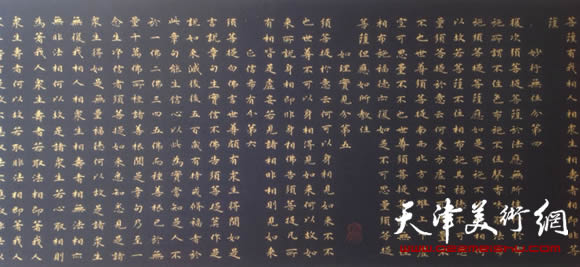 菩薩有我相人相眾生相壽者相即非菩
薩
妙行無住分第四
復次須菩提菩薩於法應無所住行於布
施所謂不住色布施不住聲香味
施須菩提菩薩應如是布施不住
以故若菩薩不住相布施其福德
量須菩提於意云何東方虛空
不不也世尊須菩提南西北方四維
空可思量不不也世尊須菩提菩薩
相布施福德亦復如是不可思量
菩薩但應如所教住
如理實見分第五
須菩提於意云何可以身相見如來不不
也世尊不可以身相得見如來何以故如
來所說身相即非身相佛告須菩提凡所
有相皆是虛妄若見諸相非相則見如來
正信希有分第六
須菩提白佛言世尊頗有衆生得聞如是
言說章句生實信不佛告須菩提莫作是
說如來滅後後五百歲有持戒修福者於
此章句能生信心以此為實當知是人不
於一佛二佛三四五佛而種善根已於無
量千萬佛所種諸善根聞是章句乃至一
念生淨信者須菩提如來悉知悉見是諸
衆生得如是無量福德何以故是諸衆生
無復我相人相衆生相壽者相無法相亦
無非法相何以故是諸衆生若心取相則
為著我人衆生壽者若取法相即著我人
衆生壽者何以故若取非法相即著我人
天津美術網